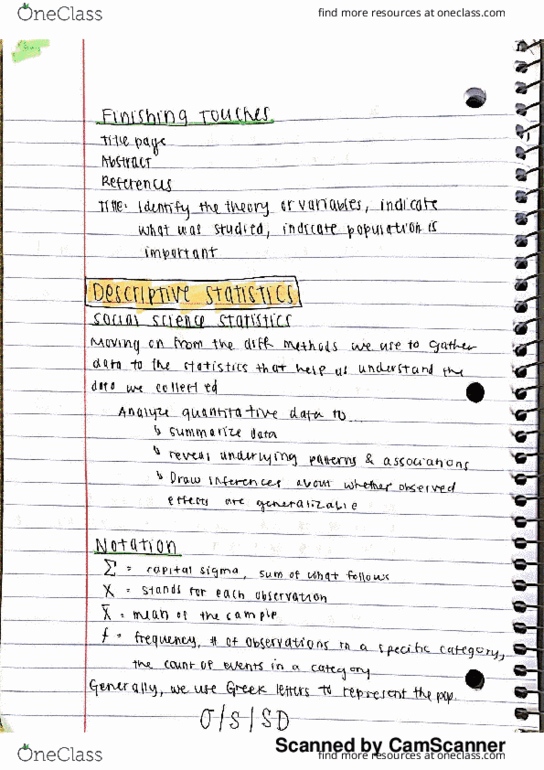 OneClass
find more resources at oneclass.com
Finishing Touches
Title page
Abstract
References
Title: Identify the theory or variables, indicate
what was studied, indicate population is
important
Descriptive Statistics
Social science statistics
Moving on from the diff methods we use to gather
data to the statistics that help us understand the
data we collected
Analyze quantitative data to
↳ summarize data
↳ reveal underlying patterns & associations
↳ Draw inferences about whether observed
effects are generalizable
Notation
Σ = capital sigma, sum of what follows
X = stands for each observation
X̄ = mean of the sample
f = frequency, # of observations in a specific category,
the count of events in a category
Generally, we use Greek letters to represent the pop.
σ/S/SD
Scanned by CamScanner
OneClass
find more resources at oneclass.com